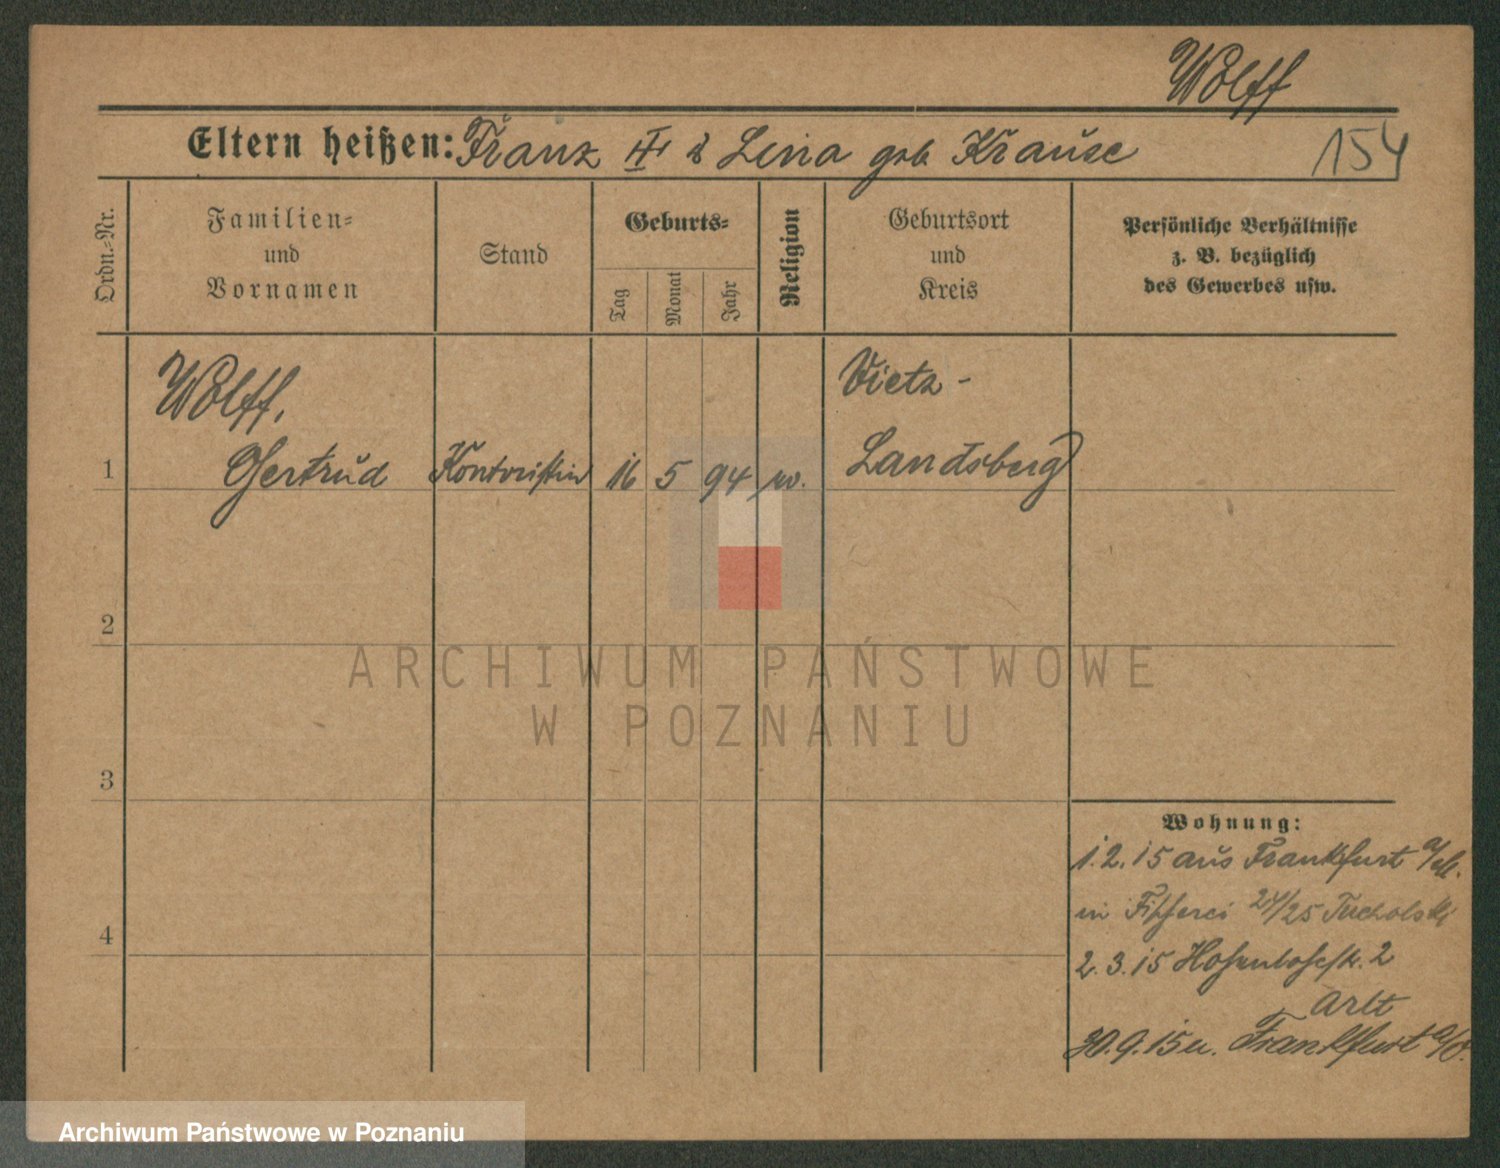 Wolff
Eltern heißen: Franz III & Lina geb Krause
154
Ordn.-Nr.
Familien-
und
Vornamen
Stand
Geburts-
Tag
Monat
Jahr
Religion
Geburtsort
und
Kreis
Persönliche Verhältnisse
z. B. bezüglich
des Gewerbes usw.
Wolff,
Vietz -
1
Gertrud
Kontoristin
16
5
94
Landsberg
2
3
4
Wohnung:
1.2.15 aus Frankfurt
in Fischerei 24/25 Tucholski
2.3.15 2
Arlt
30.9.15 n. Frankfurt a/O.
ARCHIWUM PAŃSTWOWE
W POZNANIU
Archiwum Państwowe w Poznaniu